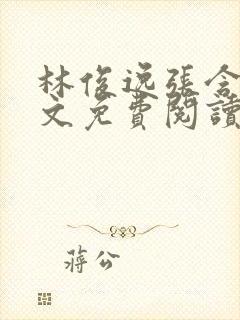 林俊逸張含
文免費閱讀
蔣公